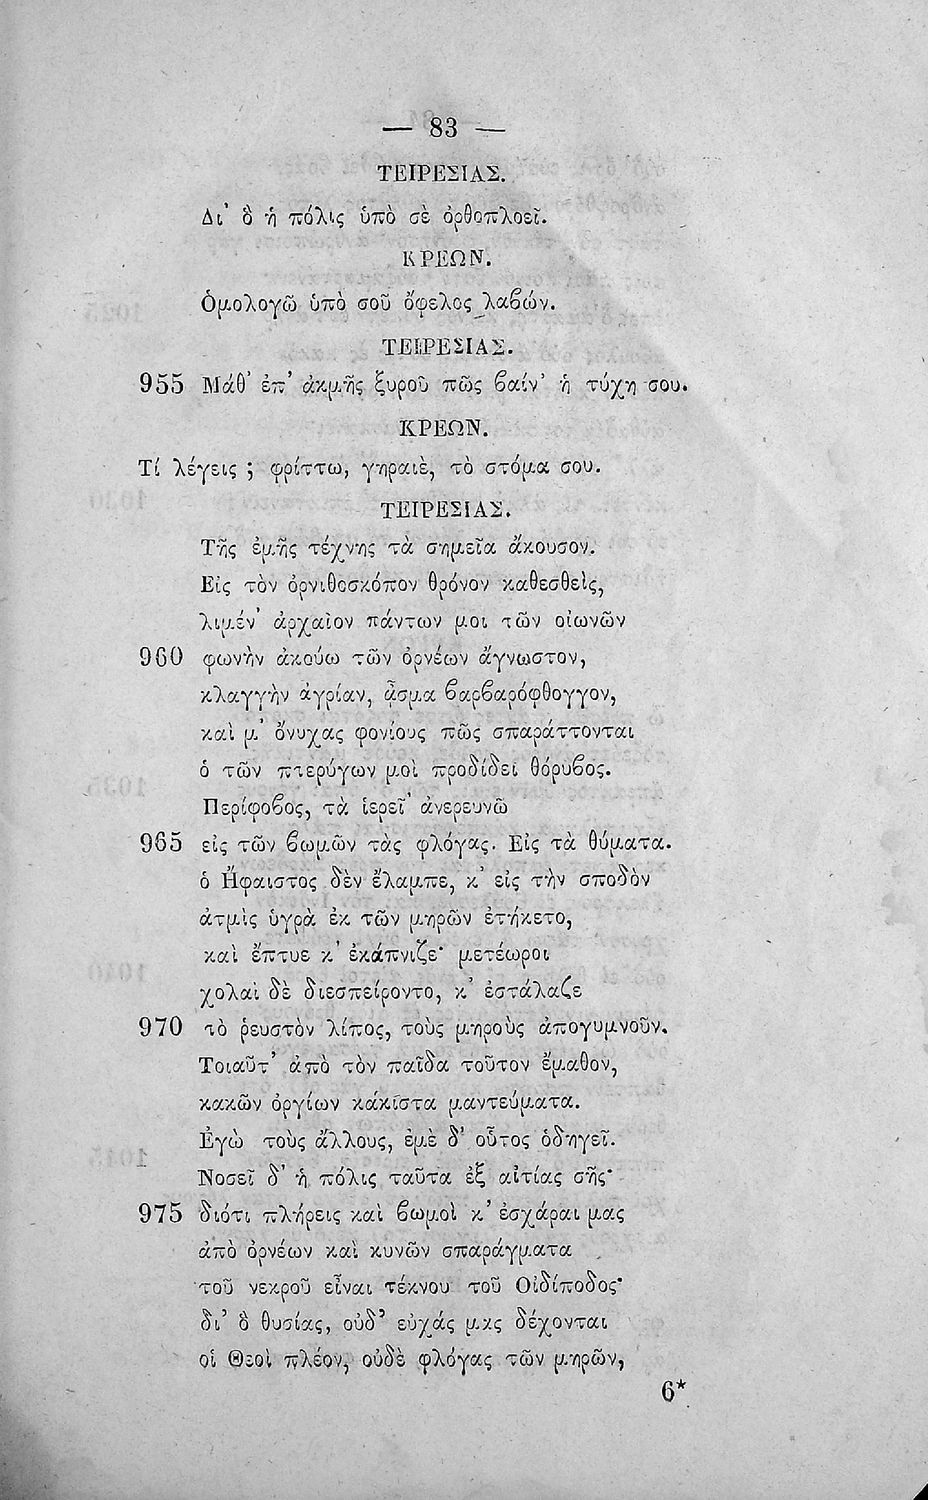 — 83 —
ΤΕΙΡΕΣΙΑΣ.
Δι’ ὃ ἡ πόλις ὑπὸ σὲ ὀρθοπλοεῖ.
ΚΡΕΩΝ.
Ὁμολογῶ ὑπὸ σοῦ ὄφελος λαβών.
ΤΕΙΡΕΣΙΑΣ.
955 Μάθ’ ἐπ’ ἀκμῆς ξυροῦ πῶς βαίν’ ἡ τύχη σου.
ΚΡΕΩΝ.
Τί λέγεις ; φρίττω, γηραιὲ, τὸ στόμα σου.
ΤΕΙΡΕΣΙΑΣ.
Τῆς ἐμῆς τέχνης τὰ σημεῖα ἄκουσον.
Εἰς τὸν ὀρνιθοσκόπον θρόνον καθεσθεὶς,
λιμέν’ ἀρχαῖον πάντων μοι τῶν οἰωνῶν
960 φωνὴν ἀκούω τῶν ὀρνέων ἄγνωστον,
κλαγγὴν ἀγρίαν, ᾆσμα βαρβαρόφθογγον,
καὶ μ’ ὄνυχας φονίους πῶς σπαράττονται
ὁ τῶν πτερύγων μοὶ προδίδει θόρυβος.
Περίφοβος, τὰ ἱερεῖ’ ἀνερευνῶ
965 εἰς τῶν βωμῶν τὰς φλόγας. Εἰς τὰ θύματα.
ὁ Ἥφαιστος δὲν ἔλαμπε, κ’ εἰς τὴν σποδὸν
ἀτμὶς ὑγρὰ ἐκ τῶν μηρῶν ἐτήκετο,
καὶ ἔπτυε κ’ ἐκάπνιζε· μετέωροι
χολαὶ δὲ διεσπείροντο, κ’ ἐστάλαζε
970 τὸ ῥευστὸν λίπος, τοὺς μηροὺς ἀπογυμνοῦν.
Τοιαῦτ’ ἀπὸ τὸν παῖδα τοῦτον ἔμαθον,
κακῶν ὀργίων κάκιστα μαντεύματα.
Ἐγὼ τοὺς ἄλλους, ἐμὲ δ’ οὗτος ὁδηγεῖ.
Νοσεῖ δ’ ἡ πόλις ταῦτα ἐξ αἰτίας σῆς·
975 διότι πλήρεις καὶ βωμοὶ κ’ ἐσχάραι μας
ἀπὸ ὀρνέων καὶ κυνῶν σπαράγματα
τοῦ νεκροῦ εἶναι τέκνου τοῦ Οἰδίποδος·
δι’ ὃ θυσίας, οὐδ’ εὐχάς μας δέχονται
οἱ Θεοὶ πλέον, οὐδὲ φλόγας τῶν μηρῶν,
6*